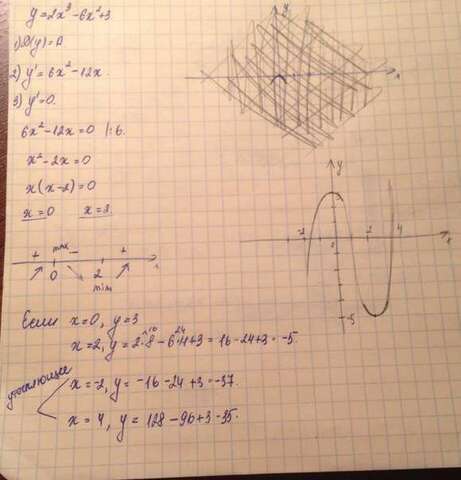 y = 2x³ - 6x² + 3
1) D(y) = R
2) y' = 6x² - 12x.
3) y' = 0.
6x² - 12x = 0 |:6.
x² - 2x = 0
x(x-2) = 0
x = 0 x = 2.
+ max - +
0 2 x
min
Если x = 0, y = 3
x = 2, y = 2·8 - 6·4 + 3 = 16 - 24 + 3 = -5.
16 24
уточняющие
x = -2, y = -16 - 24 + 3 = -37.
x = 4, y = 128 - 96 + 3 = 35.
y
x
y
3
-2 2 4
x
-5